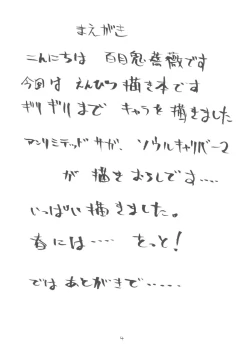 まえがき
こんにちは 百目鬼薔薇です
今回は えんぴつ描き本です
ギリギリまで キャラを描きました
アンリミテッドサガ、ソウルキャリバー2
が 描きおろしです‥‥
いっぱい描きました。
春には‥‥ もっと!
では あとがきで‥‥‥
4